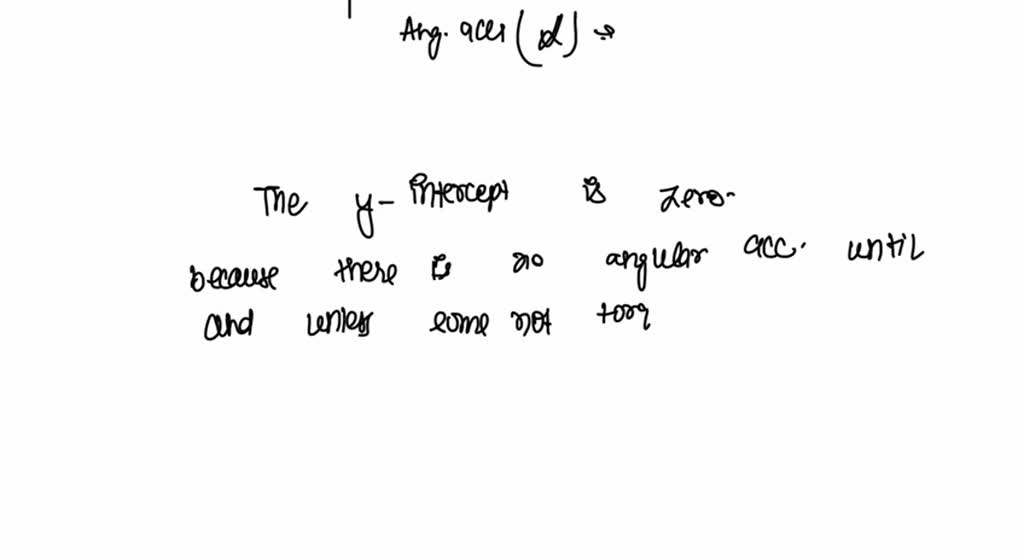 Ang. acc (α) →
The y-intercept is zero.
because there is no angular acc. until
and unless some net torq